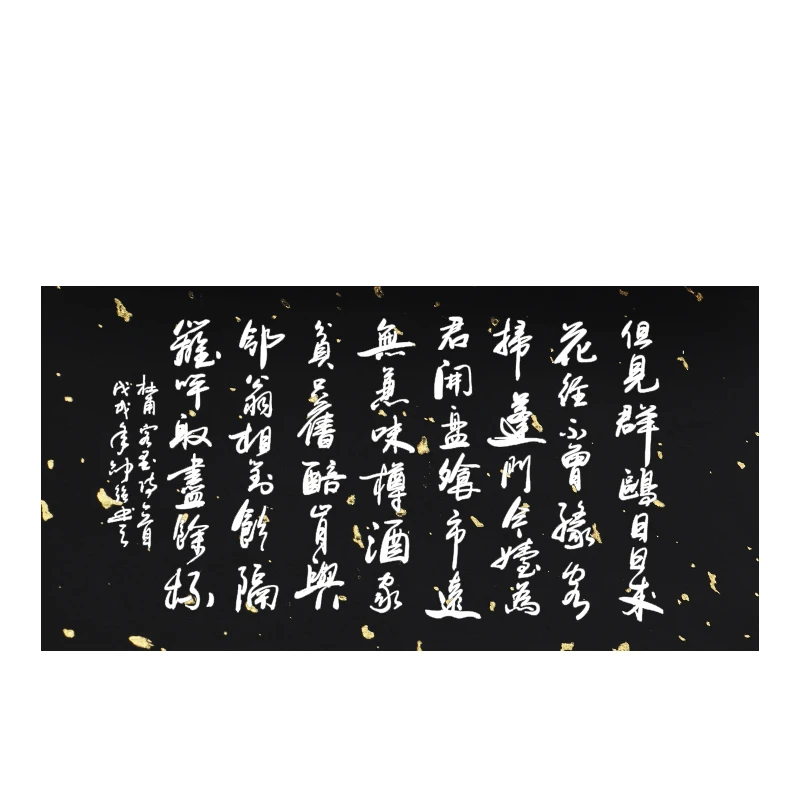 但見群鷗日日来
花徑不曾緣客
掃蓬門今始為
君開盤飧市遠
無兼味樽酒家
貧只舊醅肯與
鄰翁相對飲隔
籬呼取盡餘杯
杜甫客至詩一首
戊戌年